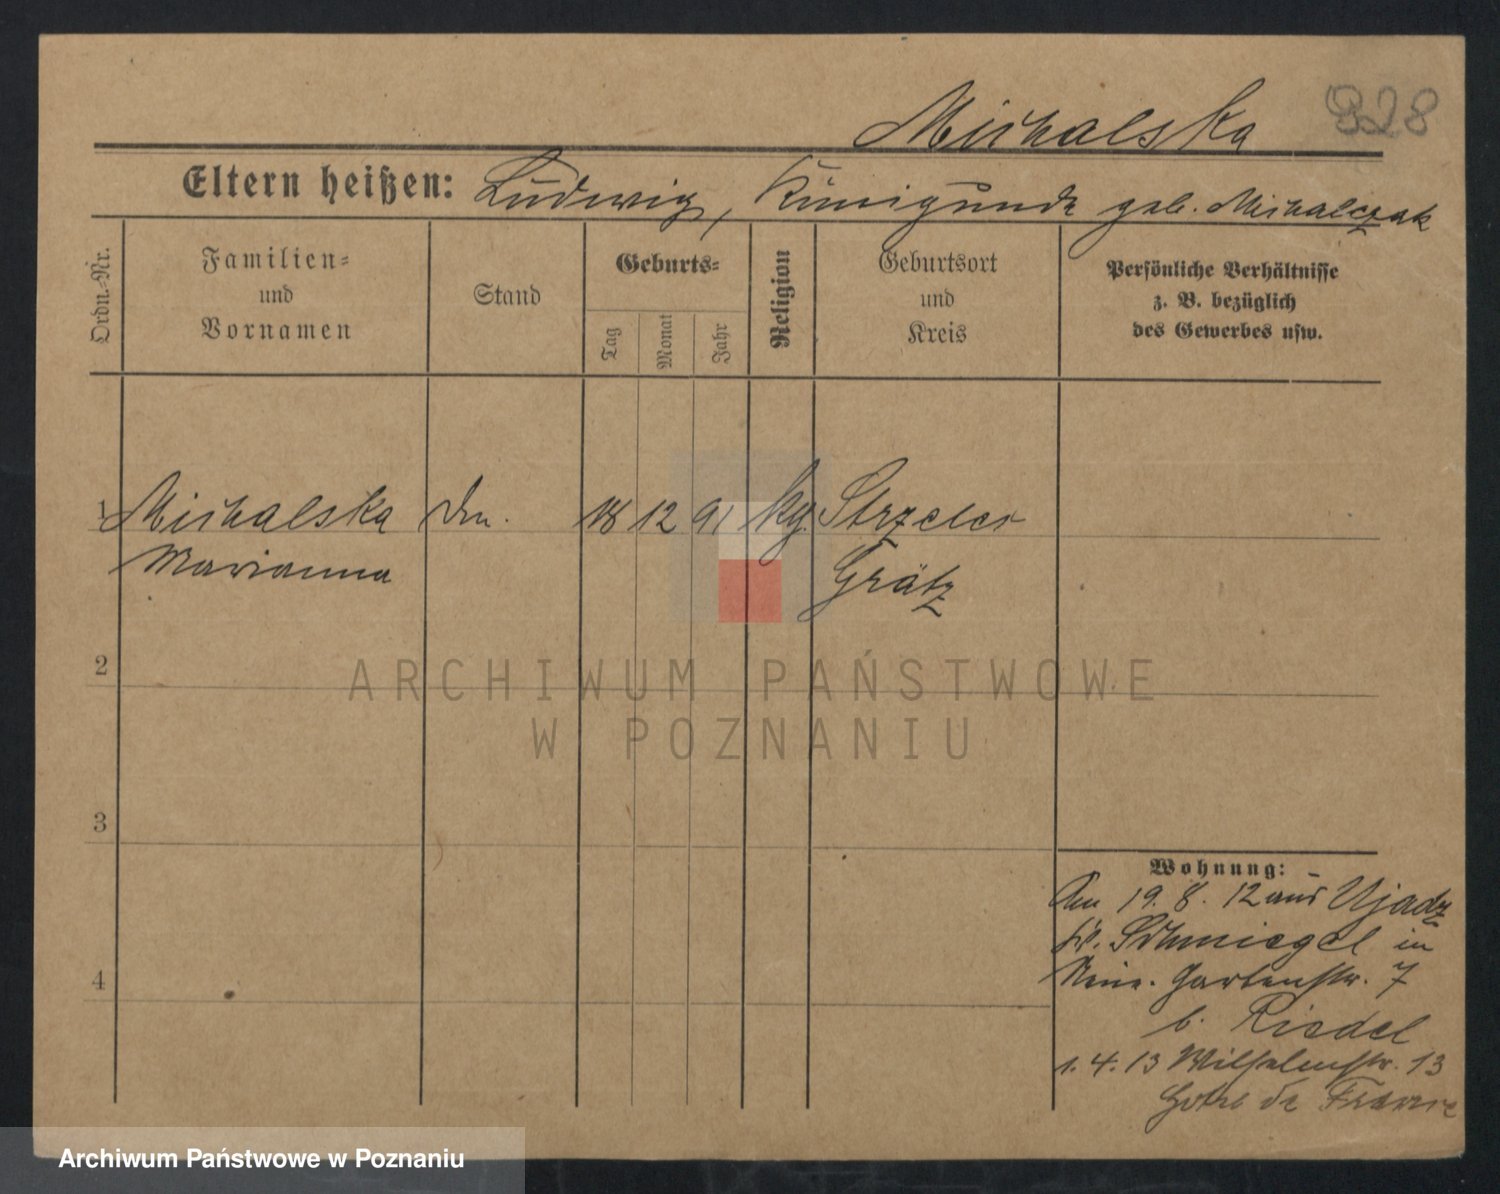 Michalska 928
Eltern heißen: Ludwig, Kunigunde geb. Michalczak
Ordn.-Nr.
Familien-
und
Vornamen
Stand
Geburts-
Tag
Monat
Jahr
Religion
Geburtsort
und
Kreis
Persönliche Verhältnisse
z. B. bezüglich
des Gewerbes usw.
1 Michalska 18 12 91 Strzelce
Marianna Grätz
2
3
4
Wohnung:
Am 19. 8. 12 aus Ujadz
Kr. Schmiegel in
Gartenstr. 7
b. Riedel
1. 4. 13 Wilhelmstr. 13
Hotel de France
ARCHIWUM PAŃSTWOWE
W POZNANIU
Archiwum Państwowe w Poznaniu